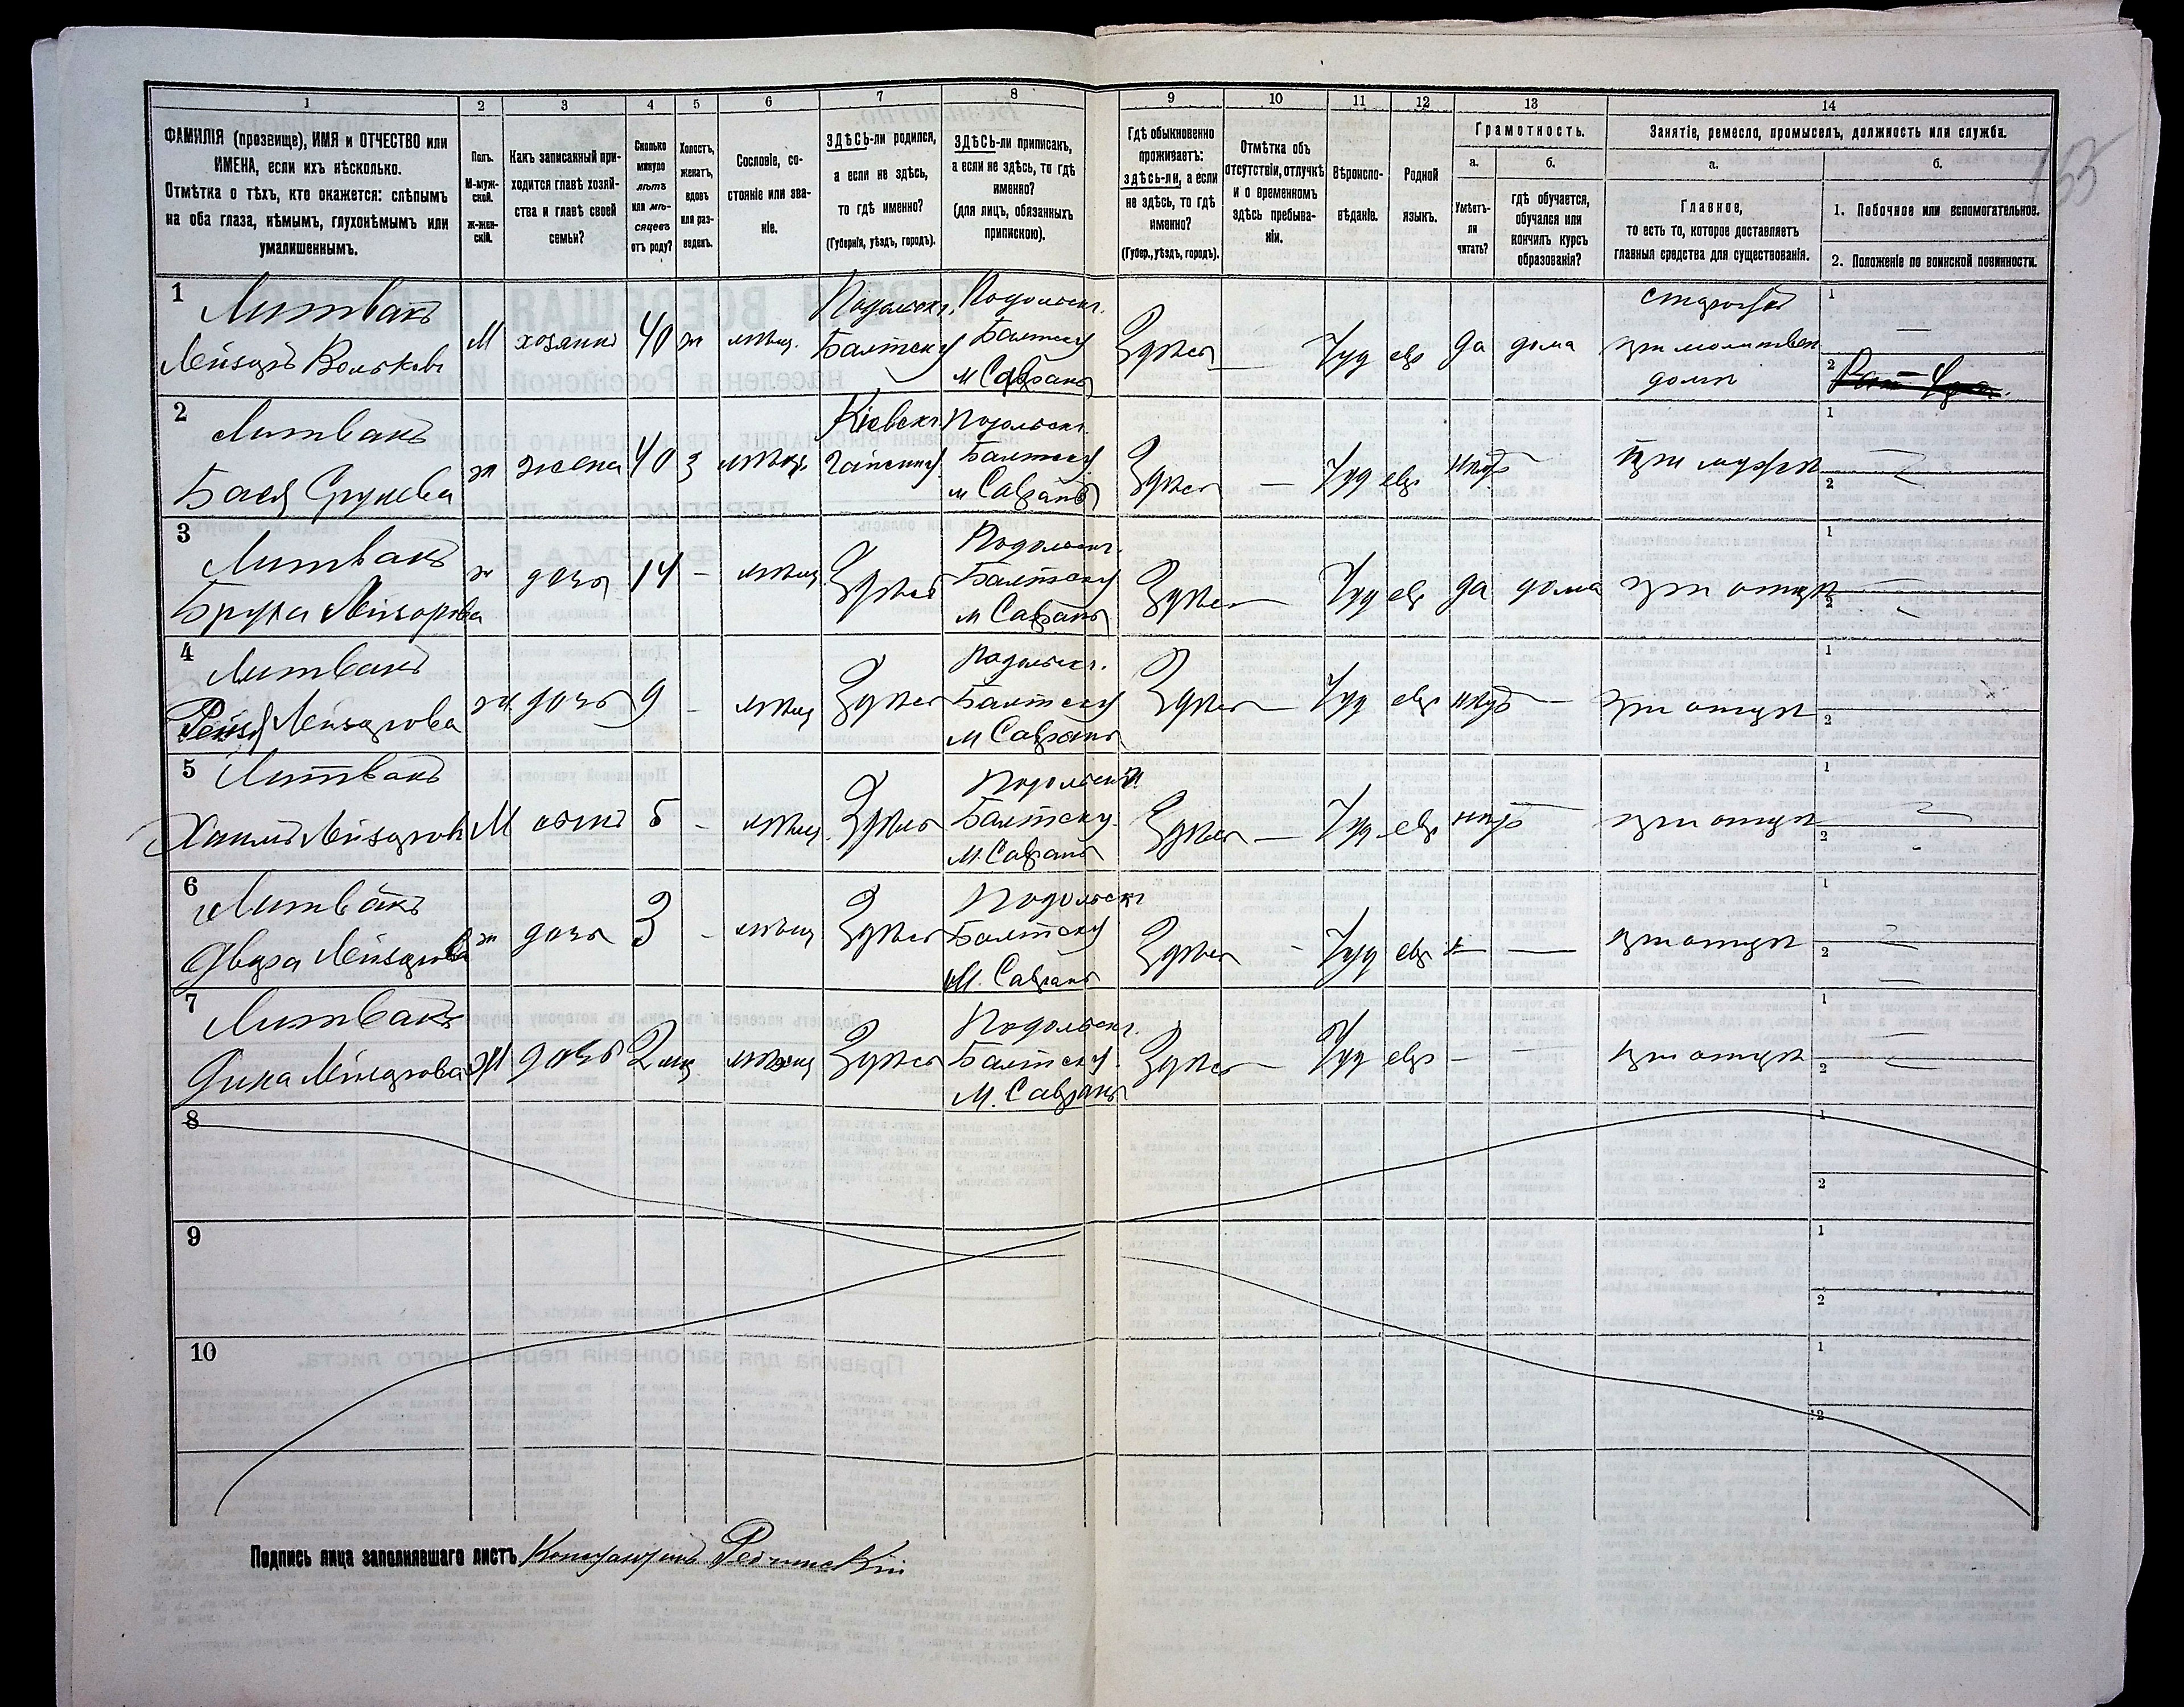 1 2 3 4 5 6 7 8 9 10 11 12 13 14
ФАМИЛІЯ (прозвище), ИМЯ и ОТЧЕСТВО или
ИМЕНА, если ихъ нѣсколько.
Отмѣтка о тѣхъ, кто окажется: слѣпымъ
на оба глаза, нѣмымъ, глухонѣмымъ или
умалишеннымъ.
Полъ.
М-муж-
ской.
ж-жен-
скій.
Какъ записанный при-
ходится главѣ хозяй-
ства и главѣ своей
семьи?
Сколько
минуло
лѣтъ
или мѣ-
сяцевъ
отъ роду?
Холостъ,
женатъ,
вдовъ
или раз-
веденъ.
Сословіе, со-
стояніе или зва-
ніе.
ЗДѢСЬ-ли родился,
а если не здѣсь,
то гдѣ именно?
(Губернія, уѣздъ, городъ).
ЗДѢСЬ-ли приписанъ,
а если не здѣсь, то гдѣ
именно?
(для лицъ, обязанныхъ
припискою).
Гдѣ обыкновенно
проживаетъ:
здѣсь-ли, а если
не здѣсь, то гдѣ
именно?
(Губер., уѣздъ, городъ).
Отмѣтка объ
отсутствіи, отлучкѣ
и о временномъ
здѣсь пребыва-
ніи.
Вѣроиспо-
вѣданіе.
Родной
языкъ.
Грамотность.
а.
Умѣетъ-
ли
читать?
б.
гдѣ обучается,
обучался или
кончилъ курсъ
образованія?
Занятіе, ремесло, промыселъ, должность или служба.
а.
Главное,
то есть то, которое доставляетъ
главныя средства для существованія.
б.
1. Побочное или вспомогательное.
2. Положеніе по воинской повинности.
1 Литвакъ
Лейзоръ Вольковъ
М хозяинъ 40 ж мѣщ.
Подольск г.
Балтск у
Подольск г.
Балтск у
м Саврань
Здѣсь — Іуд евр да дома
при молитвен
домѣ
1 —
2
2 Литвакъ
Бася Сруnева
ж жена 40 з мѣщ.
Кіевск г.
Гайсинск у
Подольск г.
Балтск у
м Саврань
Здѣсь — Іуд евр нѣтъ — при мужѣ
1
2
3 Литвакъ
Брука Лейзорова
ж дочь 14 - мѣщ Здѣсь
Подольск г.
Балтск у
м Саврань
Здѣсь — Іуд евр да дома при отцѣ
1
2
4 Литвакъ
Рейзя Лейзорова
ж дочь 9 - мѣщ Здѣсь
Подольск г.
Балтск у
м Саврань
Здѣсь — Іуд евр нѣтъ — при отцѣ
1
2
5 Литвакъ
Хаимъ Лейзоровъ
М сынъ 5 - мѣщ. Здѣсь
Подольск г.
Балтск у.
м. Саврань
Здѣсь — Іуд евр нѣтъ при отцѣ
1
2
6 Литвакъ
Двера Лейзорова
ж дочь 3 - мѣщ Здѣсь
Подольск г
Балтск у
М. Саврань
Здѣсь - Іуд евр — — при отцѣ
1
2
7 Литвакъ
Лейзорова
Ж дочь 2 мѣс мѣщ Здѣсь
Подольск г.
Балтск у.
М. Саврань
Здѣсь — Іуд евр — — при отцѣ
1
2
8
1
2
9
1
2
10
1
2
Подпись лица заполнявшаго листъ